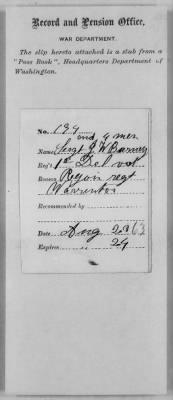 Record and Pension Office,
WAR DEPARTMENT.
The slip hereto attached is a stub from a
"Pass Book", Headquarters Department of
Washington.
No. 139
and 4 men
Name, Sergt J W Barney
Reg't 1st Del vol
Reason Rejoin regt
Warrenton
Recommended by
Date Aug 28 63
Expires " 29